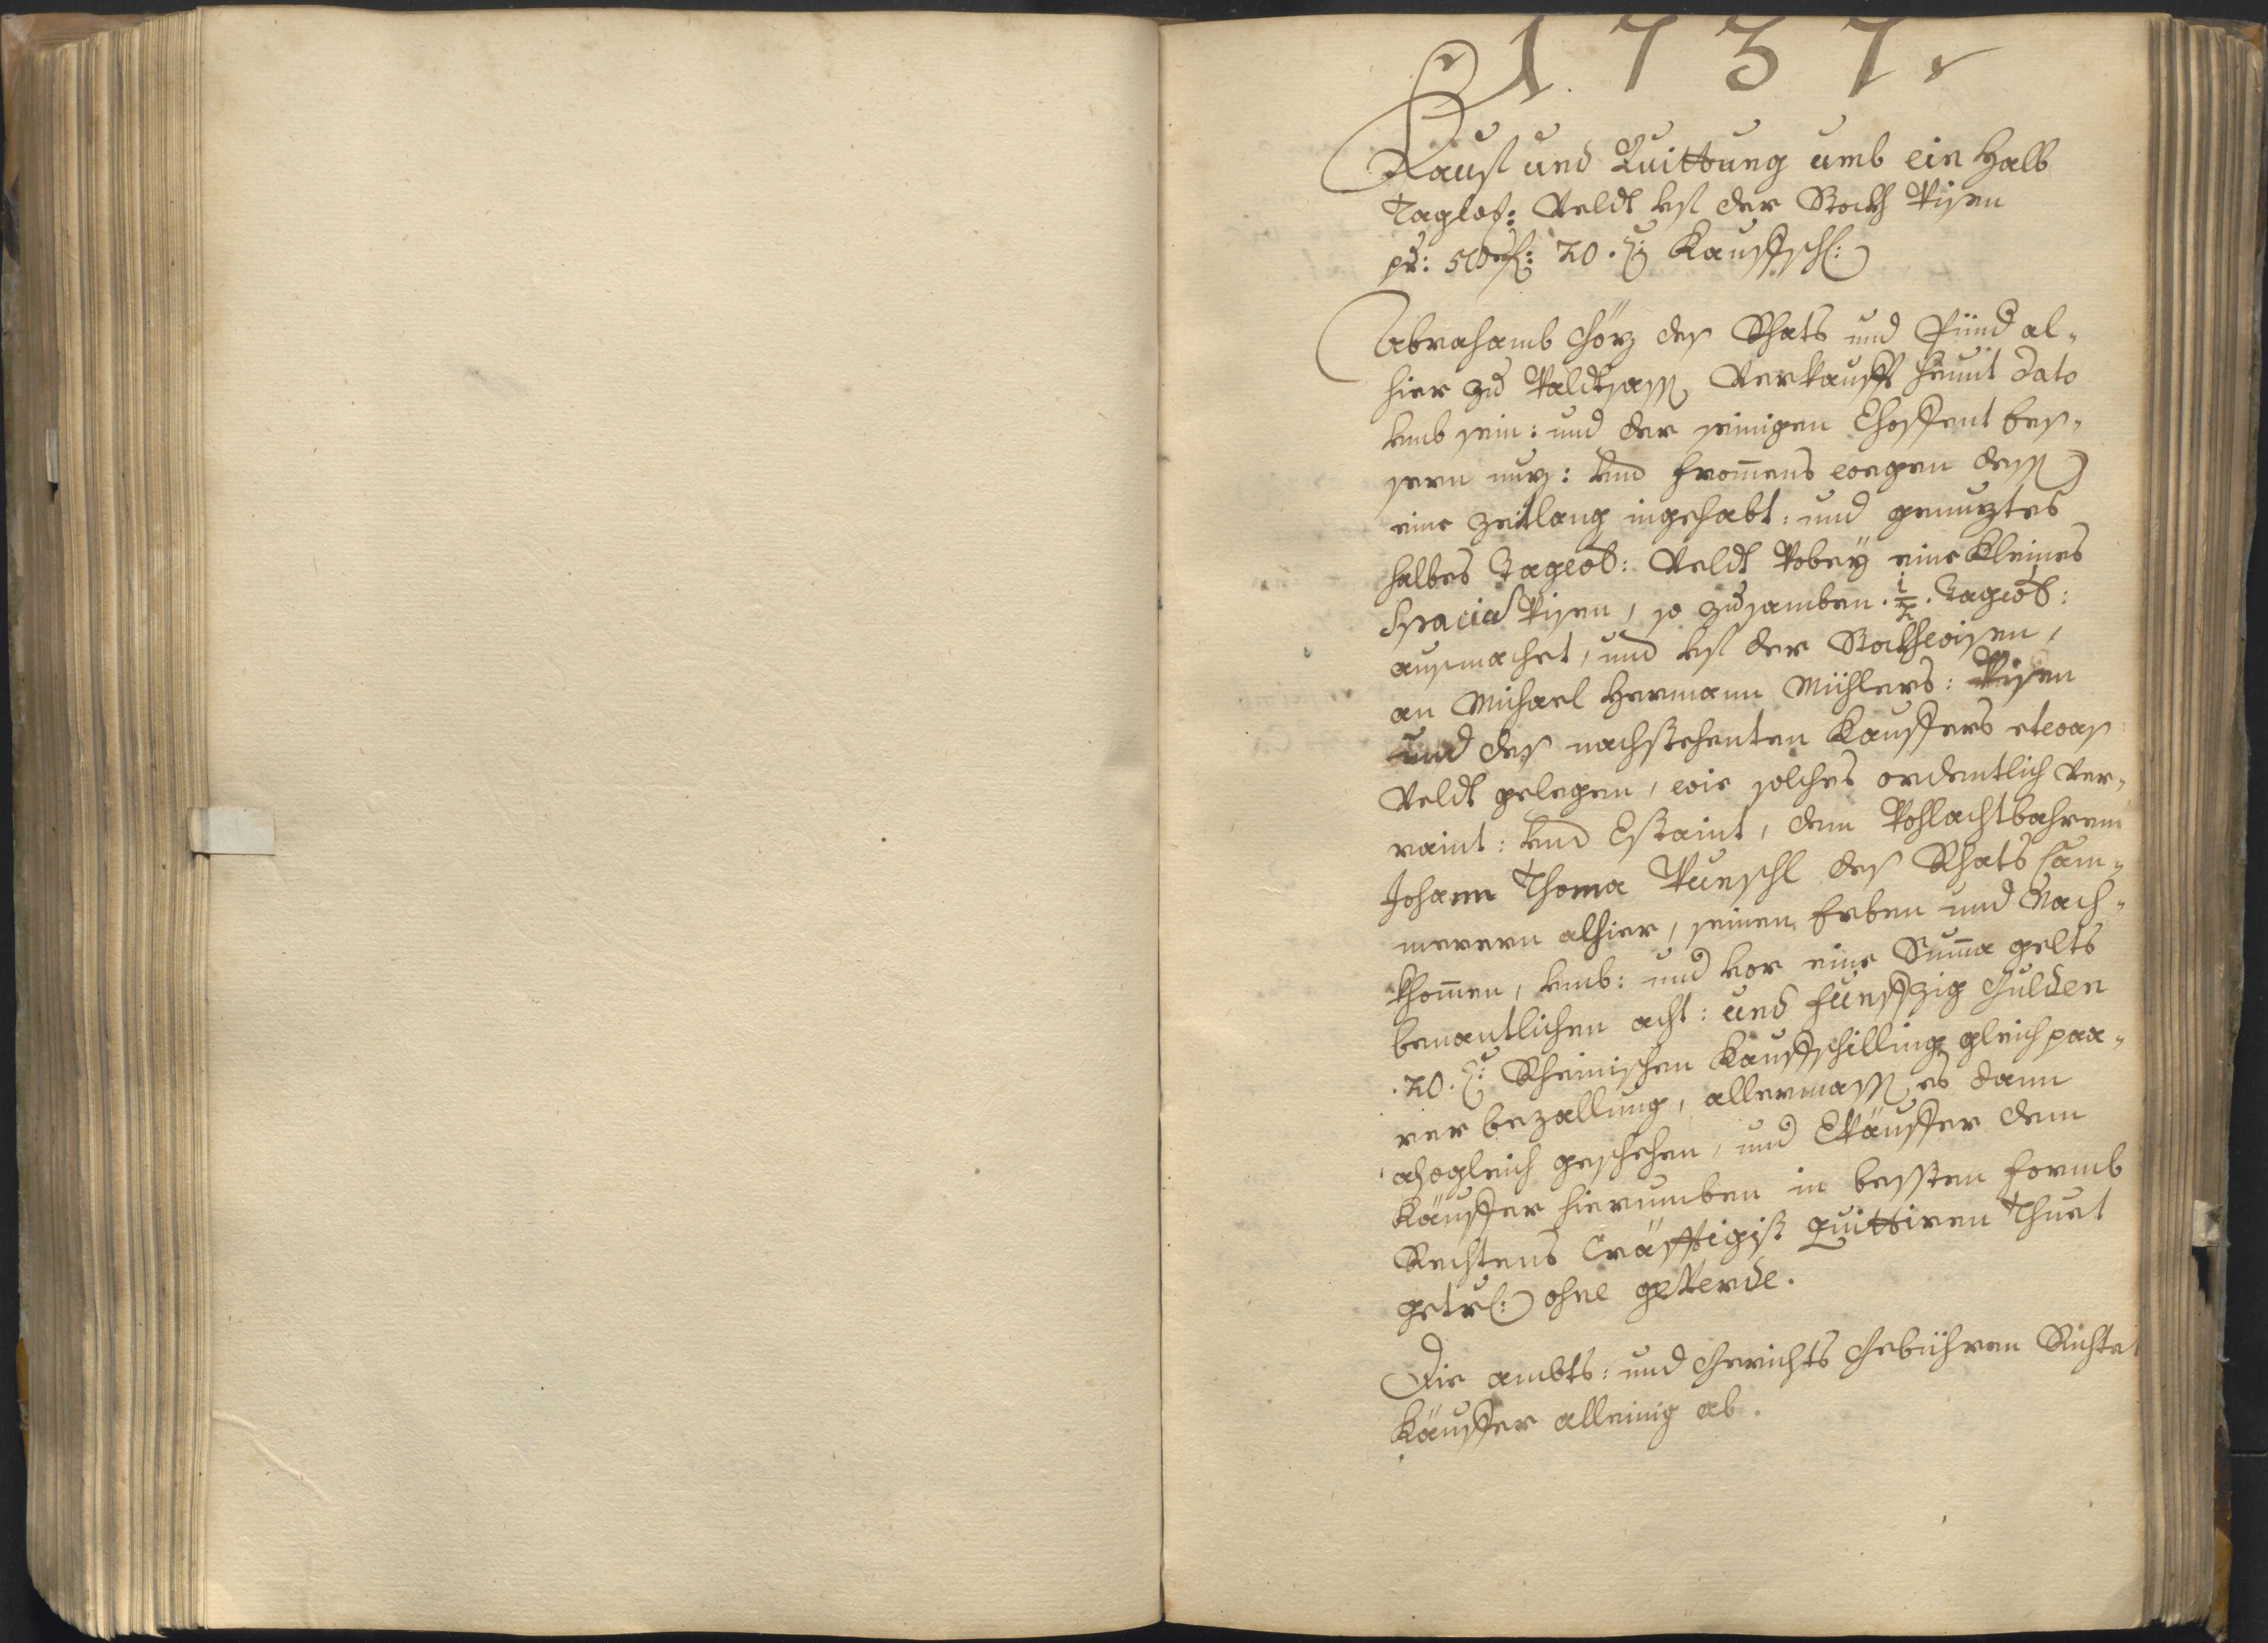 1737.
Kauf und Quittung umb ein Halb
Tagw: Veldt uf der Stockh Wisen
pr: 58 f: 20. x: Kauffschl:
Abrahamb Göz des Rhats und al-
hier zu Waldtsassen Verkaufft heunt dato
umb sein: und der seinigen bes-
sern nuz: und frommens wegen dess
eine Zeitlang ingehabt: und genuztes
halbes Tagwd: Veldt Wobey eine Kleines
Wisen, so zusamben . 1/2 . Tagwd:
ausmachet, und uf der Stockhwisen,
an Michael Hermann Mühlers: Wisen
und des nachstehenten Kauffers etwas
Veldt gelegen, wie solches ordentlich Ver-
raint: und Estaint, dem Wohlachtbahren
Johann Thoma Wunschl des Rhats Cam-
merern alhier, seinen Erben und Nach-
khommen, umb: und vor eine Summa gelts
benantlichen acht: und funffzig Gulden
. 20. x: Rheinischen Kauffschilling gleich paa-
rer bezallung, allermassen es dann
also gleich geschehen, und Vkäuffer dem
Käuffer hierumben in bessten formb
Rechtens Cräfftigist Quittiren Thuet
getrl: ohne geverde.
Die ambts: und Gerichts Gebühren Richtet
Käuffer alleinig ab.